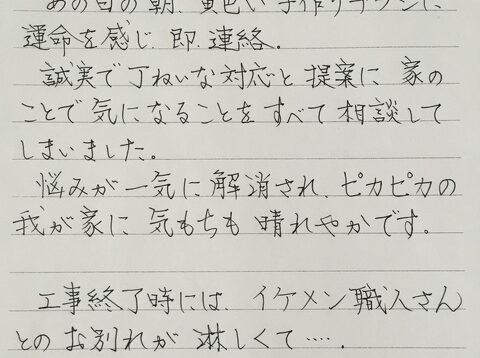 あの日の朝、黄色い手作りチラシに
運命を感じ、即、連絡.
誠実で丁ねいな対応と提案に家の
ことで気になることをすべて相談して
しまいました。
悩みが一気に解消され、ピカピカの
我が家に気もちも晴れやかです。
工事終了時には、イケメン職人さん
とのお別れが淋しくて‥‥.